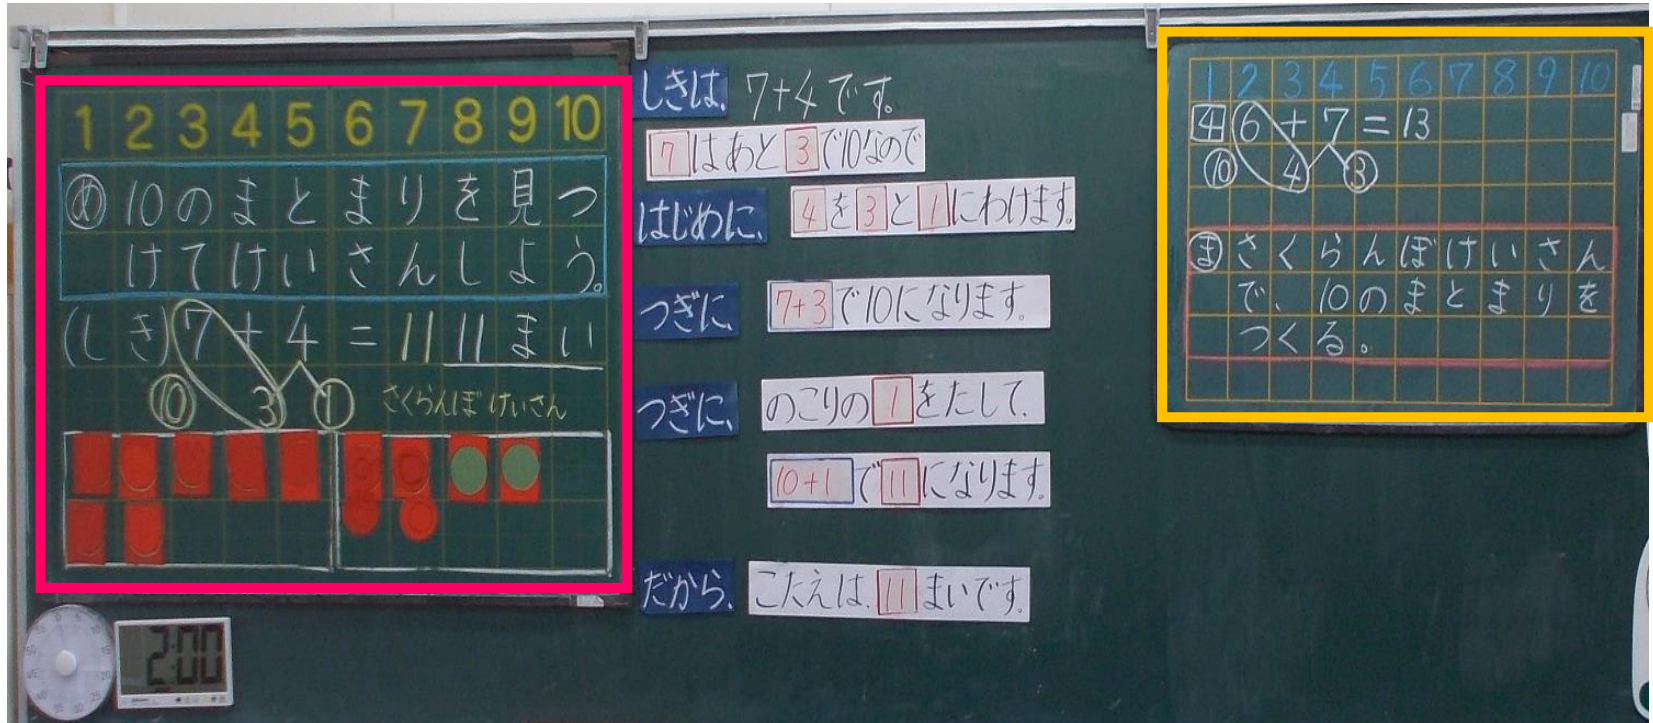 1 2 3 4 5 6 7 8 9 10
め 10のまとまりを見つ
けてけいさんしよう。
(しき)7+4=11 11まい
10 3 1 さくらんぼけいさん
2:00
しきは、7+4です。
7はあと3で10なので
はじめに、4を3と1にわけます。
つぎに、7+3で10になります。
つぎに、のこりの1をたして、
10+1で11になります。
だから、こたえは、11まいです。
1 2 3 4 5 6 7 8 9 10
4 6+7=13
10 4 3
ま さくらんぼけいさん
で、10のまとまりを
つくる。